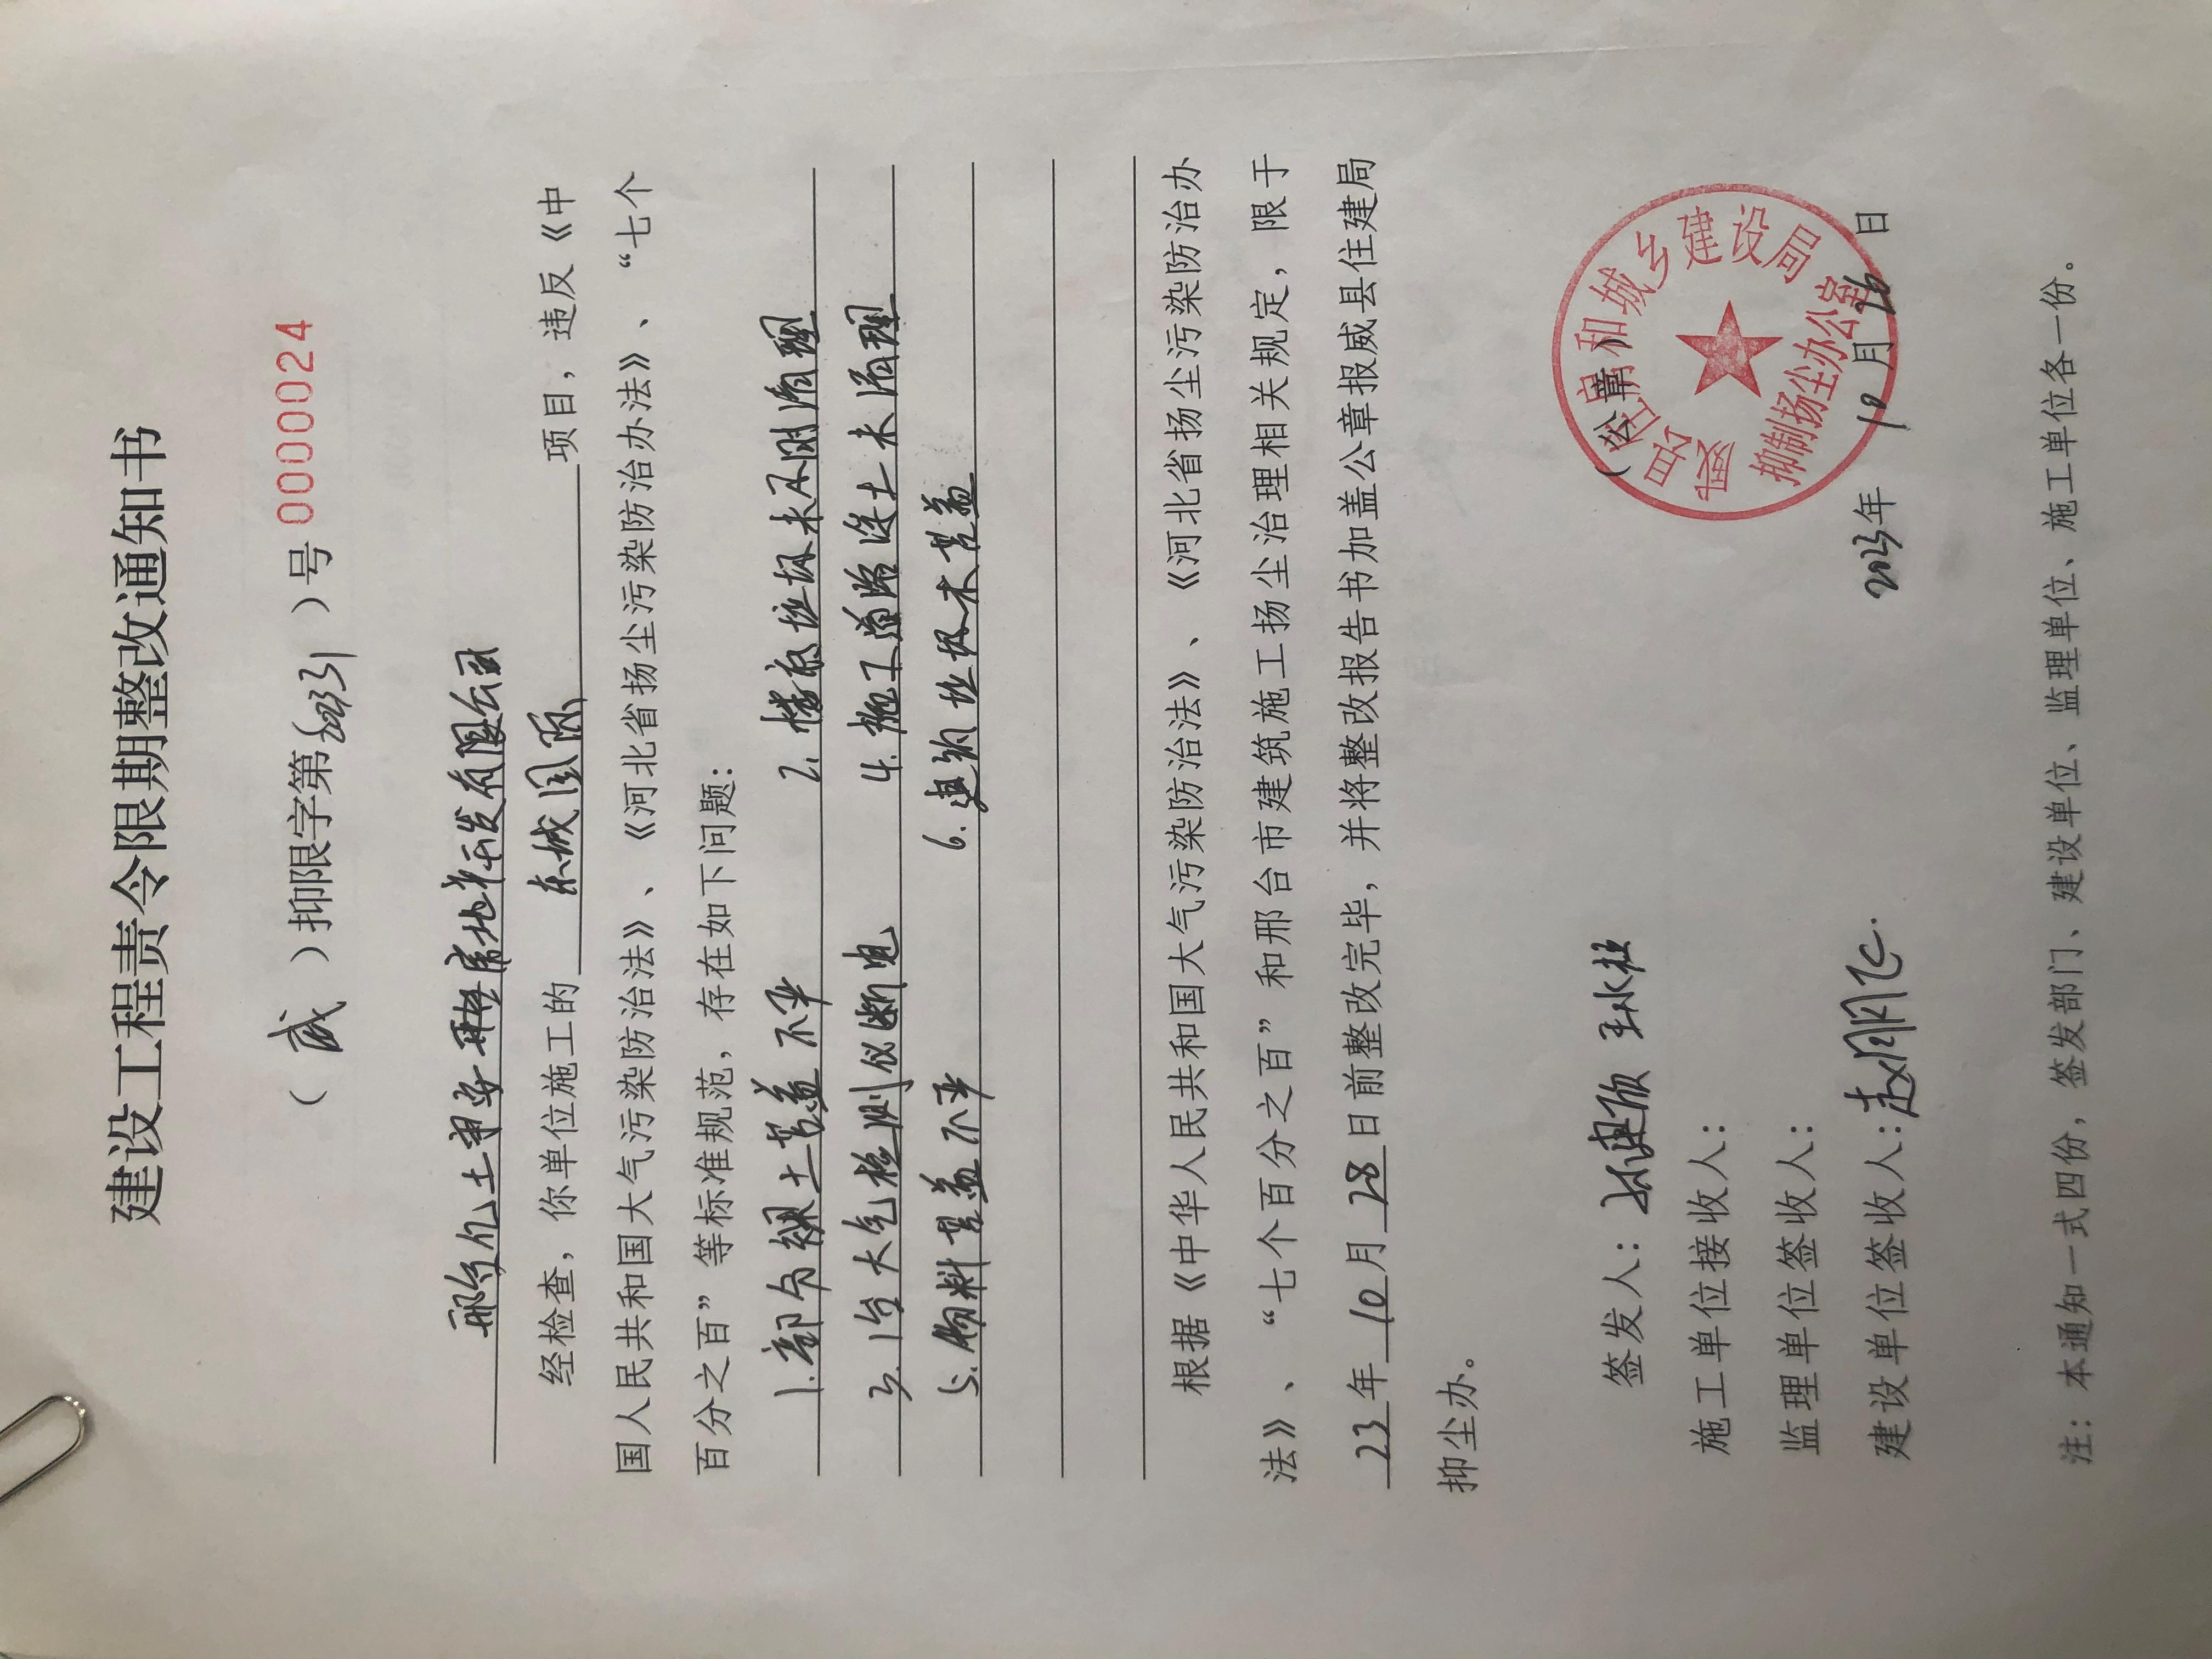 建设工程责令限期整改通知书
（ 威 ）抑限字第 ）号 0000024
房地产开发有限公司
经检查，你单位施工的 东城国际 项目，违反《中
国人民共和国大气污染防治法》、《河北省扬尘污染防治办法》、“七个
百分之百”等标准规范，存在如下问题：
1.部分裸土苫盖不严 2.楼座垃圾未及时清理
3.1台大气检测仪断电 4.施工道路浮土未清理
5.物料苫盖不严 6.建筑垃圾未苫盖
根据《中华人民共和国大气污染防治法》、《河北省扬尘污染防治办
法》、“七个百分之百”和邢台市建筑施工扬尘治理相关规定，限于
23年10月28日前整改完毕，并将整改报告书加盖公章报威县住建局
抑尘办。
威县住房和城乡建设局
抑制扬尘办公室
（公章）
签发人：
施工单位接收人：
监理单位签收人：
建设单位签收人：赵朋飞
2023年10月26日
注：本通知一式四份，签发部门、建设单位、监理单位、施工单位各一份。